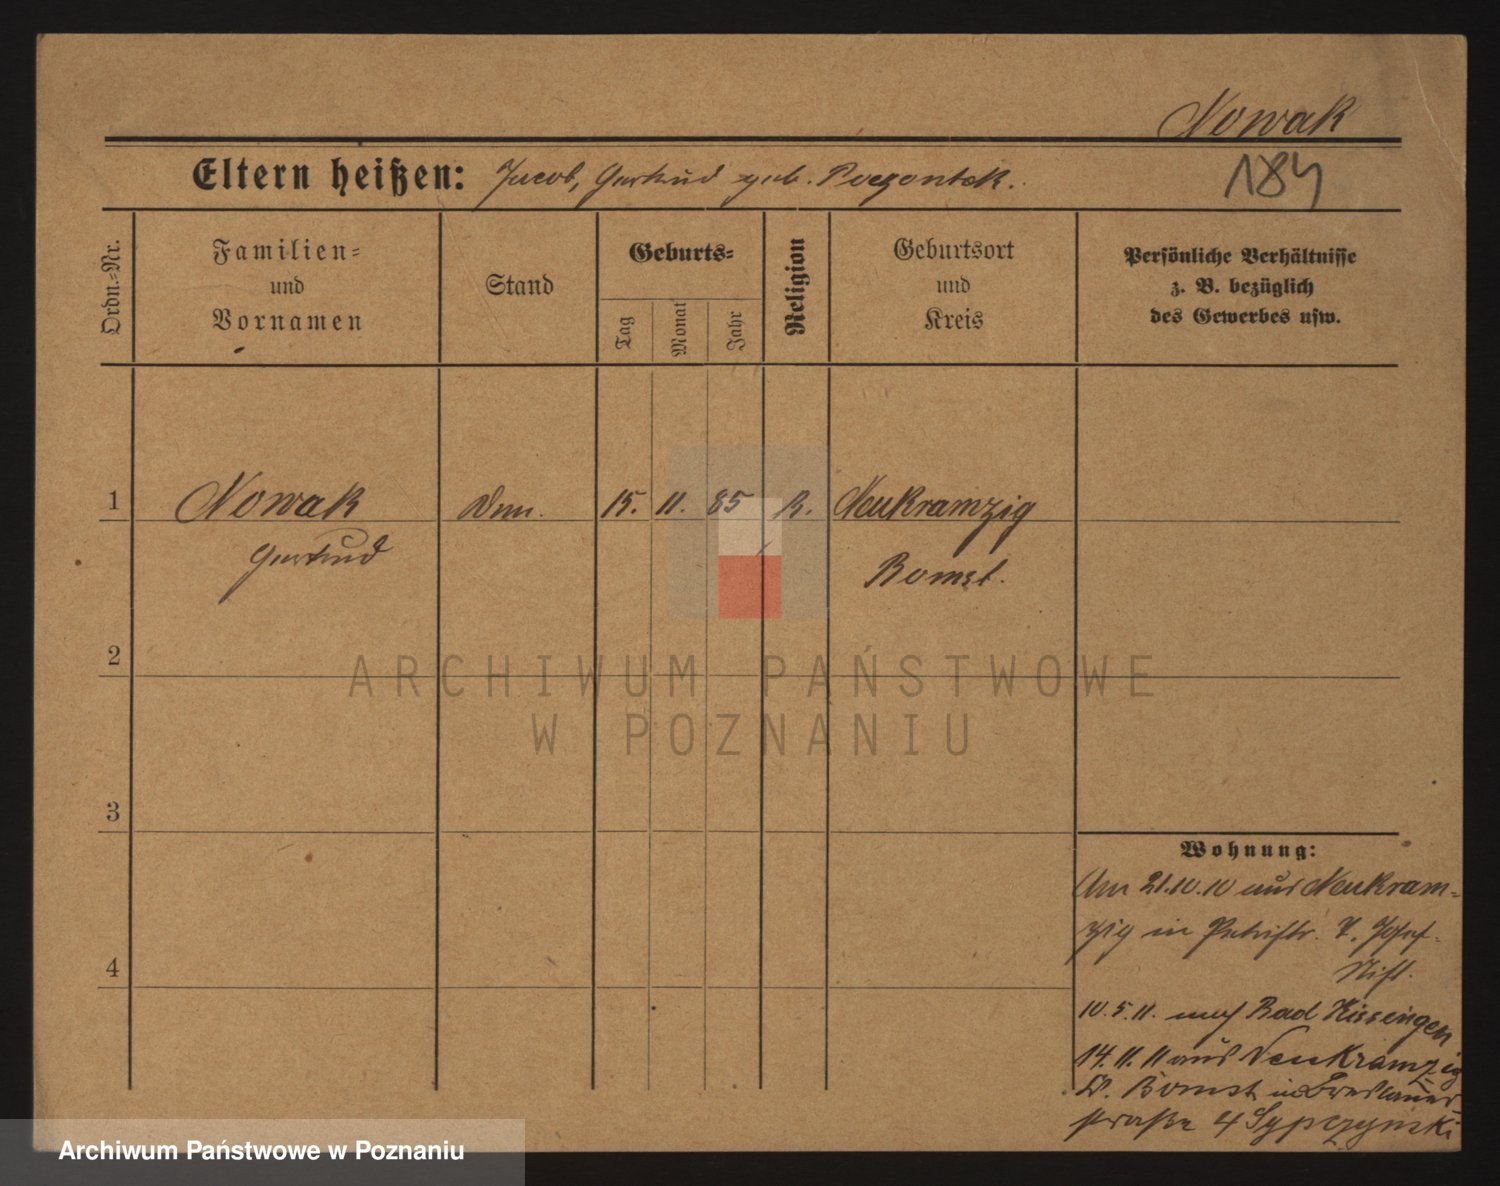 Nowak
184
Eltern heißen: Jacob, Gertrud geb. Poczontek.
Ordn.=Nr.
Familien=
und
Vornamen
Stand
Geburts=
Tag
Monat
Jahr
Religion
Geburtsort
und
Kreis
Persönliche Verhältnisse
z. B. bezüglich
des Gewerbes usw.
1
Nowak
15. 11. 85
Neukramzig
Gertrud
Bomst.
2
3
4
Wohnung:
Am 21.10.10 aus Neukram=
zig in Petristr. 7. Josef-
Stift.
10.5.11. nach Bad Kissingen
14.11.11 aus Neukramzig
Kr. Bomst in Breslauer
straße 4 Sypczynski
ARCHIWUM PAŃSTWOWE
W POZNANIU
Archiwum Państwowe w Poznaniu